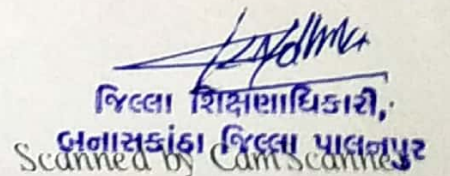 જિલ્લા શિક્ષણાધિકારી,
બનાસકાંઠા જિલ્લા પાલનપુર
Scanned by CamScanner